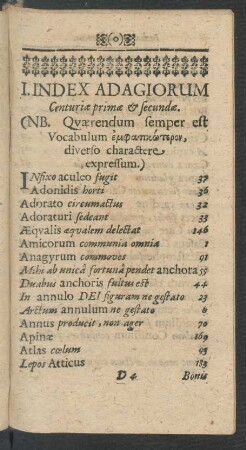 I. INDEX ADAGIORUM
Centuriæ primæ & secundæ.
(NB. Qværendum semper est
Vocabulum ἐμφατικώτερον,
diverso charactere
expressum.)
INfixo aculeo fugit 37
Adonidis horti 36
Adorato circumactus 32
Adoraturi sedeant 33
Æqvalis æqvalem delectat 146
Amicorum communia omnia 1
Anagyrum commoves 91
Mihi ab unicâ fortunâ pendet anchora 55
Duabus anchoris fultus est 44
In annulo DEI figuram ne gestato 23
Arctum annulum ne gestato 6
Annus producit, non ager 70
Apinæ 169
Atlas cœlum 93
Lepos Atticus 185
D 4 Bonis